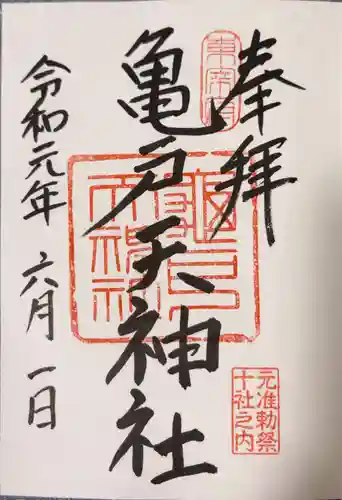 奉拝
東宰府
亀戸天神社
亀戸天神社
元准勅祭
十社之内
令和元年 六月一日